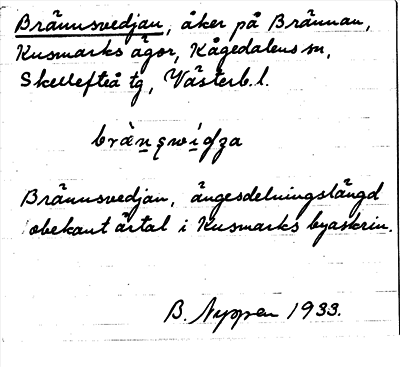 Brännsvedjan, åker på Brännan,
Kusmarks ägor, Kågedalens sn,
Skellefteå tg, Västerb. l.
Brännsvedjan, ängesdelningslängd
obekant årtal i Kusmarks byaskrin.
B. Nyppen 1933.